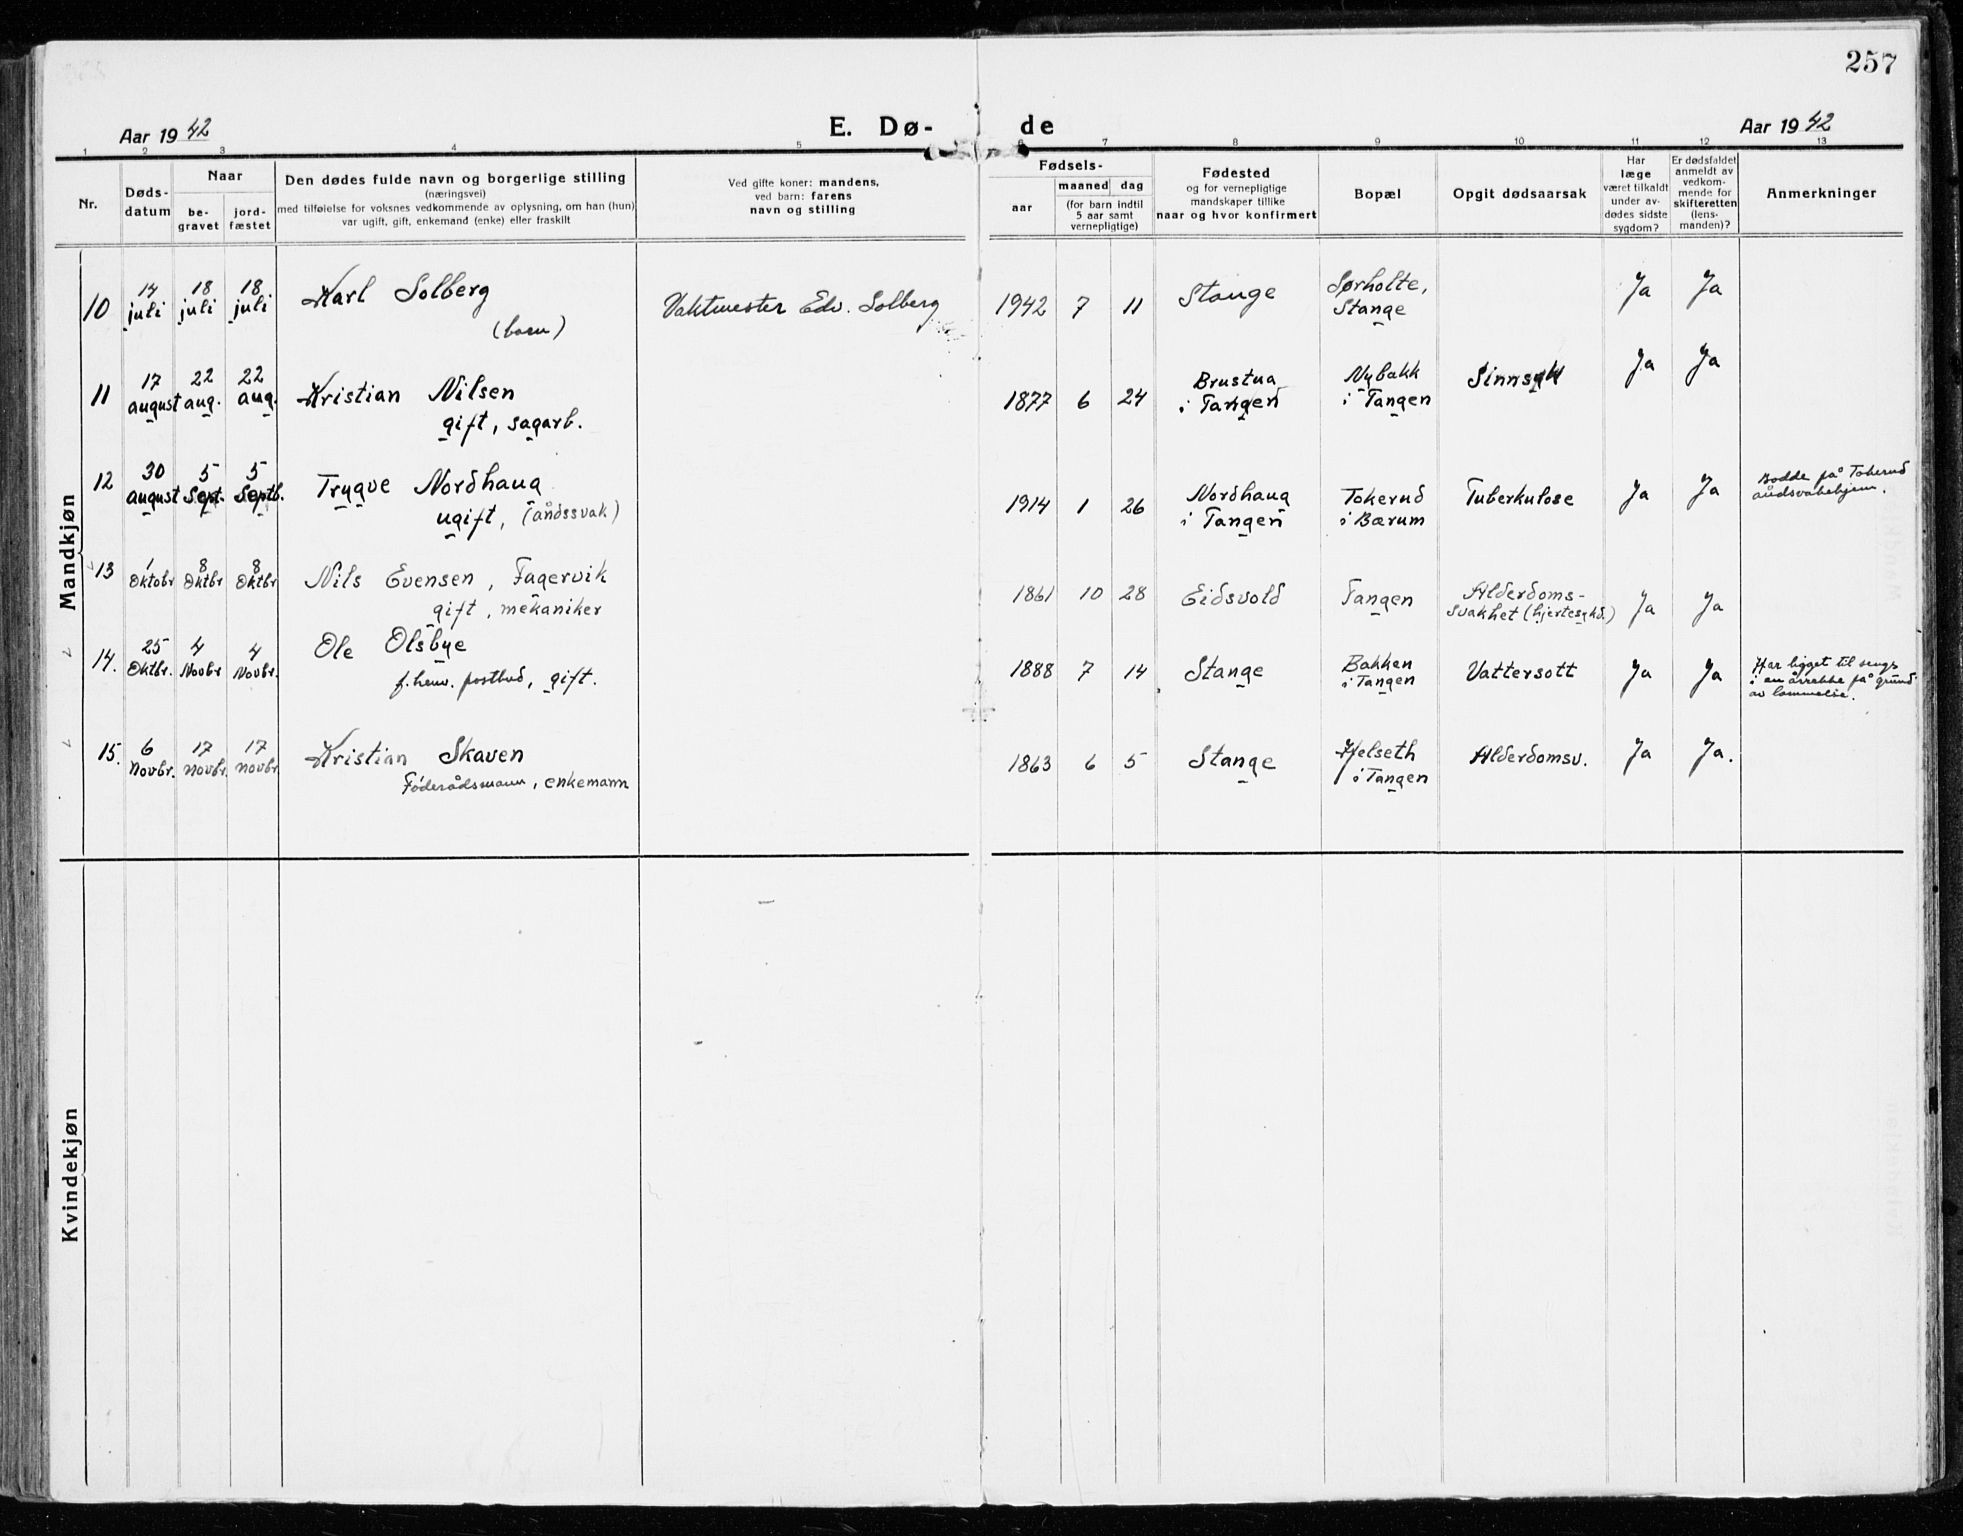 257
Aar 1942
E. Dø-
de
Aar 1942
1 2 3 4 5 6 7 8 9 10 11 12 13
Nr.
Døds-
datum
Naar
be-
gravet
jord-
fæstet
Den dødes fulde navn og borgerlige stilling
(næringsvei)
med tilføielse for voksnes vedkommende av oplysning, om han (hun)
var ugift, gift, enkemand (enke) eller fraskilt
Ved gifte koner: mandens,
ved barn: farens
navn og stilling
Fødsels-
aar
maaned dag
(for barn indtil
5 aar samt
vernepligtige)
Fødested
og for vernepligtige
mandskaper tillike
naar og hvor konfirmert
Bopæl
Opgit dødsaarsak
Har
læge
været tilkaldt
under av-
dødes sidste
sygdom?
Er dødsfaldet
anmeldt av
vedkom-
mende for
skifteretten
(lens-
manden)?
Anmerkninger
Mandkjøn
10 14 juli 18 juli 18 juli Karl Solberg
(barn)
Vaktmester Edv. Solberg
1942 7 11 Stange Sørholte,
Stange
Ja Ja
11 17 august 22 aug. 22 aug. Kristian Nilsen
gift, sagarb.
1877 6 24 Brustua
i Tangen
Nybakk
i Tangen
Sinnsyk Ja Ja
12 30 august 5 Sept. 5 Septb. Trygve Nordhaug
ugift, (åndssvak)
1914 1 26 Nordhaug
i Tangen
Tokerud
i Bærum
Tuberkulose Ja Ja
Bodde på Tokerud
åndsvakehjem.
13 1 Oktobr 8 Oktbr 8 Oktbr Nils Evensen, Fagervik
gift, mekaniker
1861 10 28 Eidsvold Tangen Alderdoms-
svakhet (hjertesykd.)
Ja Ja
14. 25 Oktbr. 4 Novbr 4 Novbr. Ole Olsbye
f.henv. postbud, gift.
1888 7 14 Stange Bakken
i Tangen
Vattersott Ja Ja
Har ligget til sengs
i en årrekke på grund
av lammelse.
15. 6 Novbr. 17 Novbr. 17 Novbr. Kristian Skaven
Føderådsmann, enkemann
1863 6 5 Stange Helseth
i Tangen
Alderdomsv. Ja Ja.
Kvindekjøn